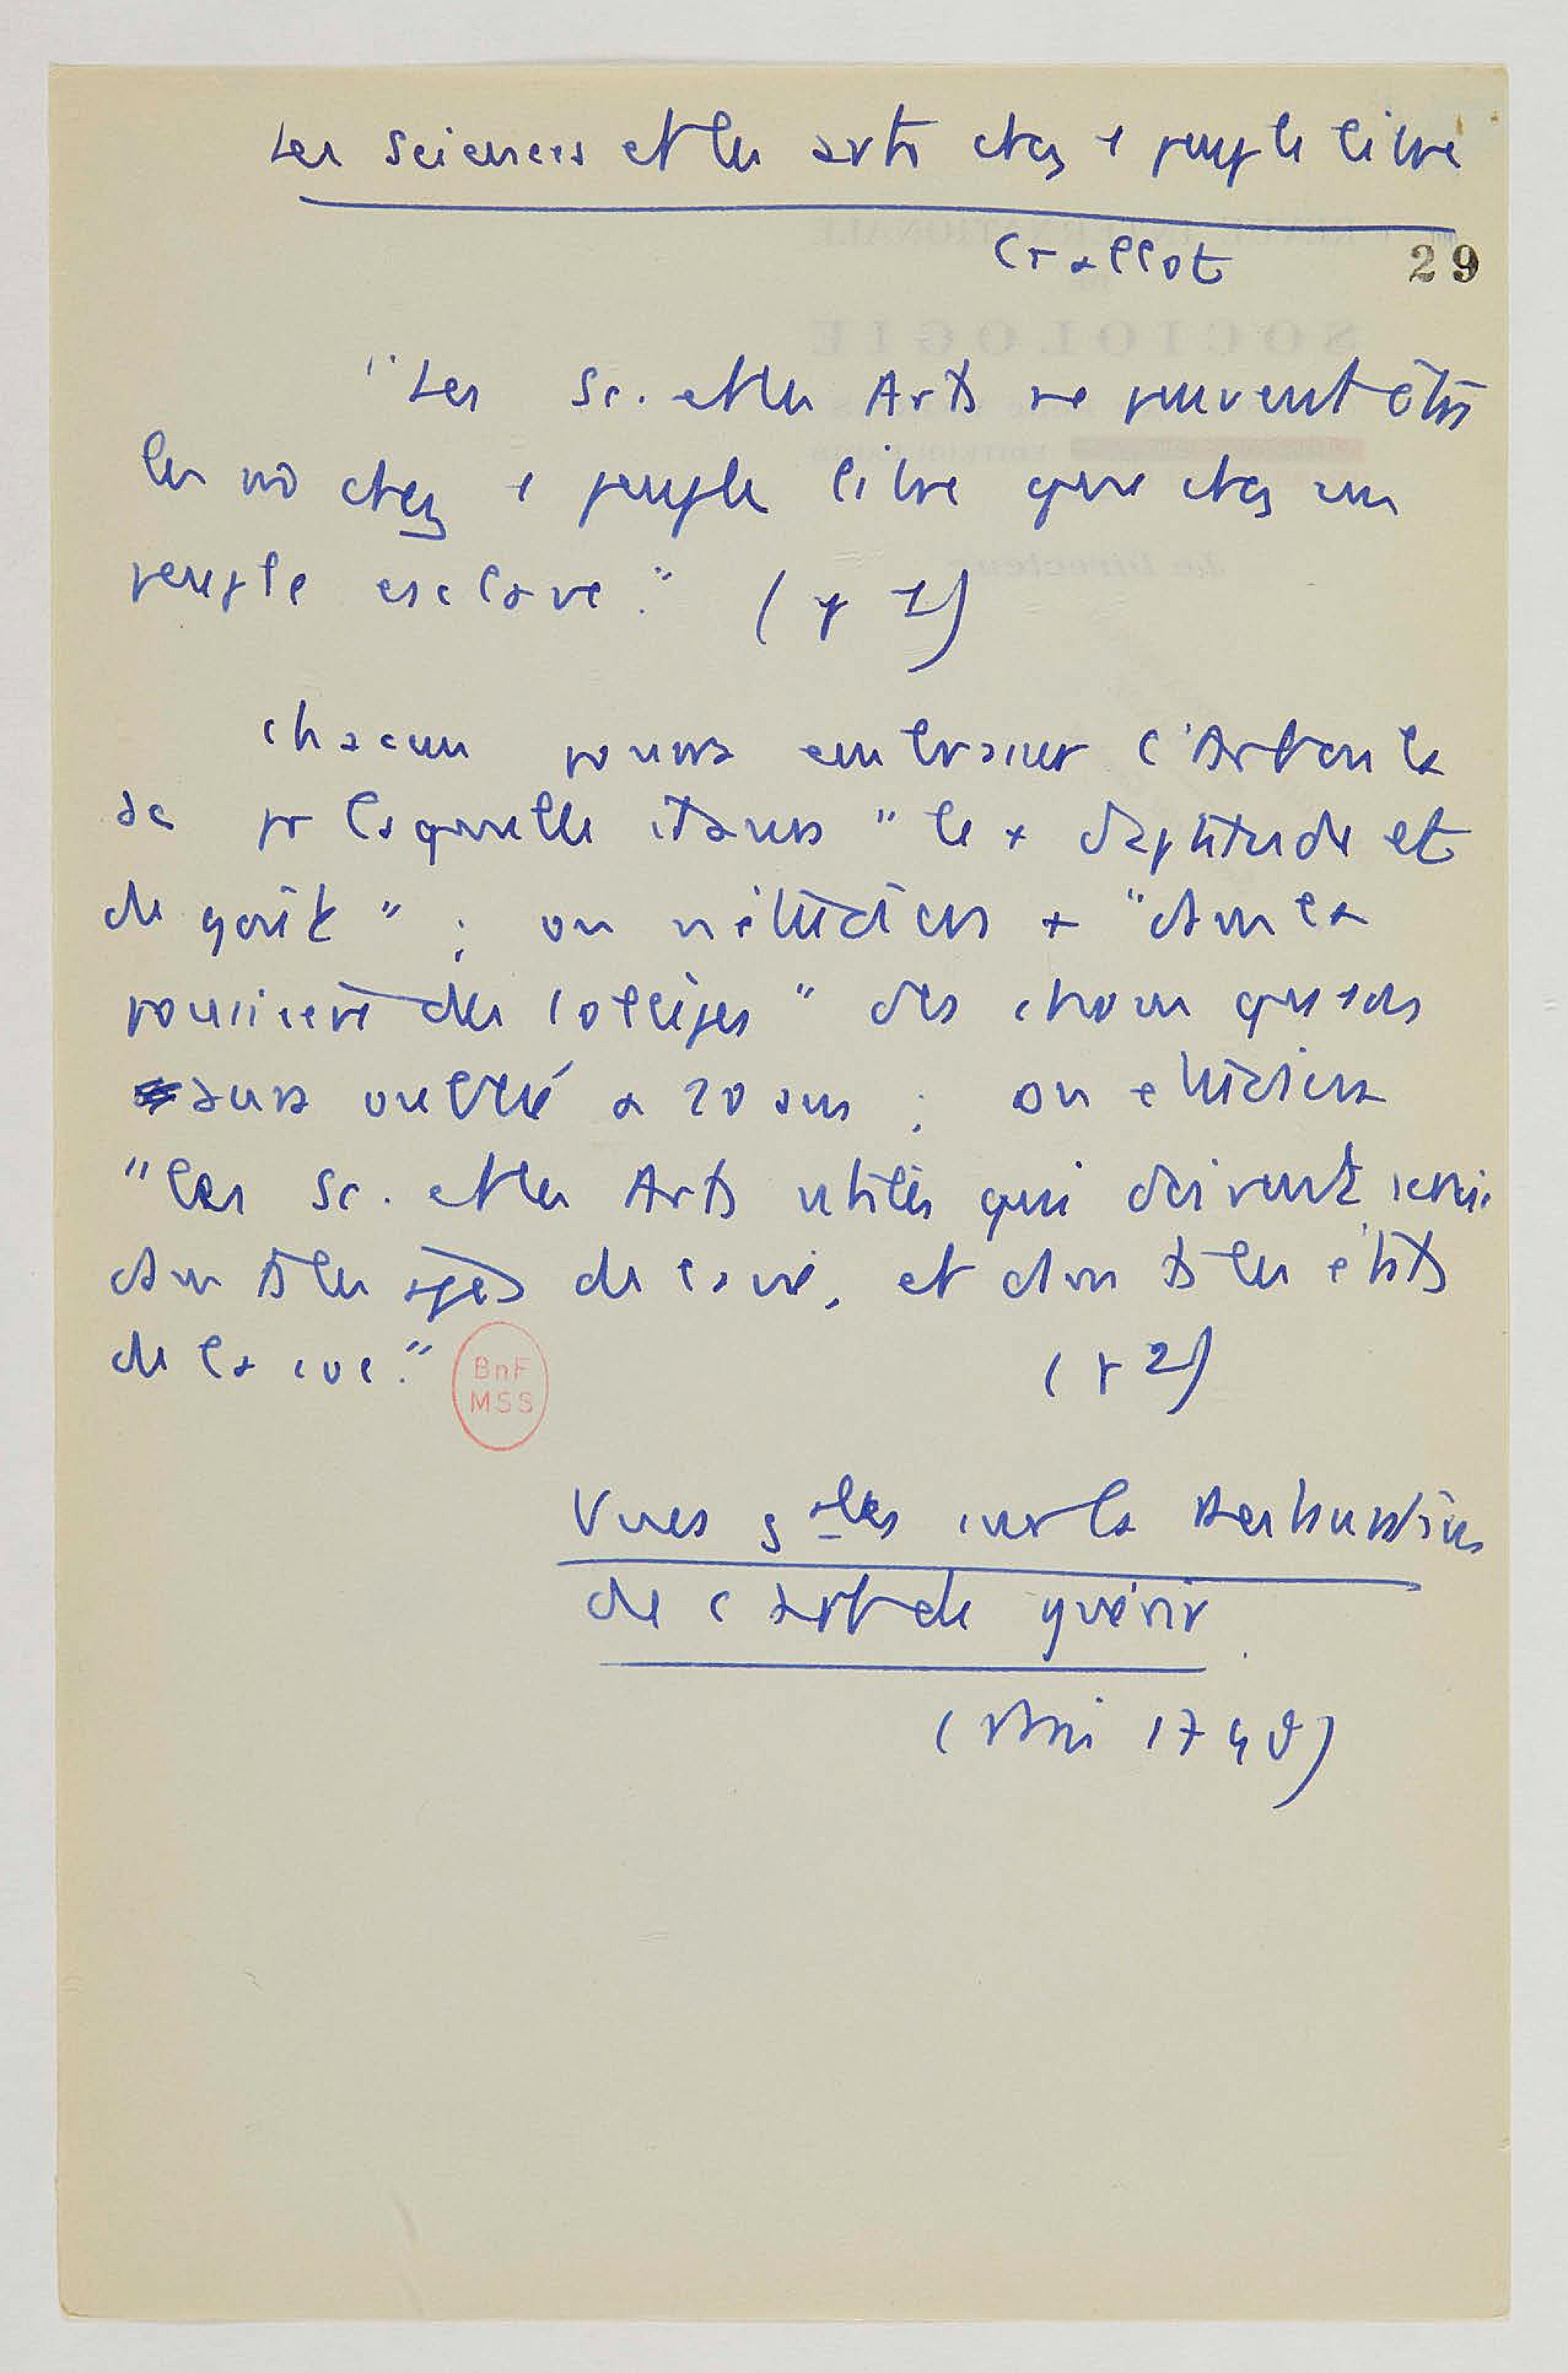 Les Sciences et les arts chez 1 peuple libre
Crallot
29
"Les Sc. et les Arts ne peuvent être
les m̂ chez 1 peuple libre que chez un
peuple esclave." (p 1)
Chacun pourra embrasser l'Art ou la
Sc pr laquelle il aura "le + d'aptitude et
de goût" ; on n'étudiera + "dans la
poussière des collèges" des choses qu'on
aura oublié à 20 ans ; on étudiera
"les Sc. et les Arts utiles qui doivent servir
dans ts les âges de la vie, et dans ts les états
de la soc."
(p 2)
BnF
MSS
Vues gales sur la Restauration
de l'art de guérir